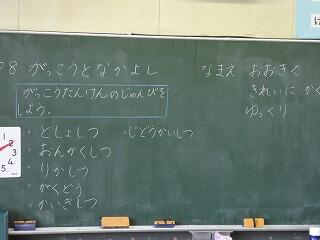 8 がっこうとなかよし
がっこうたんけんのじゅんびを
しよう。
・としょしつ
・おんがくしつ
・りかしつ
・がくどう
・かいぎしつ
・じどうかいしつ
なまえ おおきく
きれいに かく
ゆっくり
1
2
3
4
5